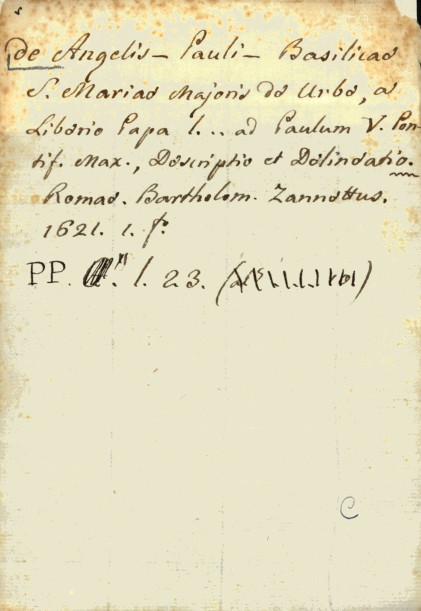 de Angelis - Pauli - Basilicae
S. Mariae Majoris de Urbe, a
Liberio Papa I... ad Paulum V. Pon-
tif. Max., Descriptio et Delineatio.
Romae. Bartholom. Zannettus.
1621. 1. f.
PP. l. 23.
C